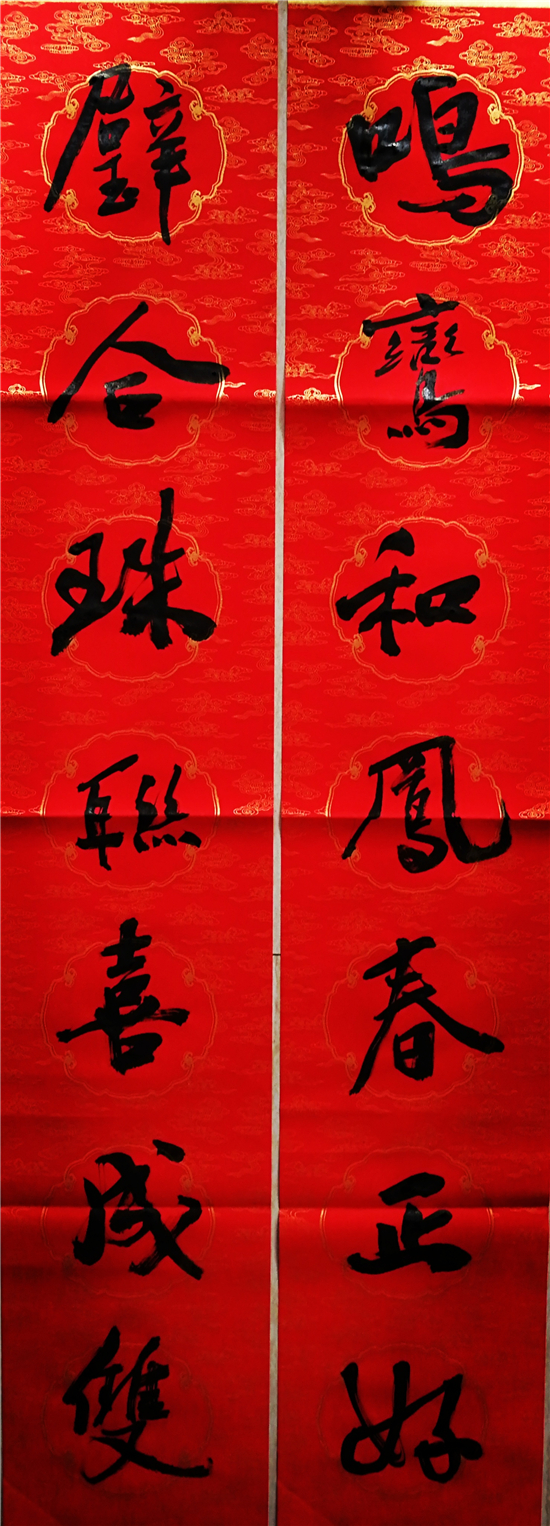 鳴鸞和鳳春正好
璧合珠聯喜成雙